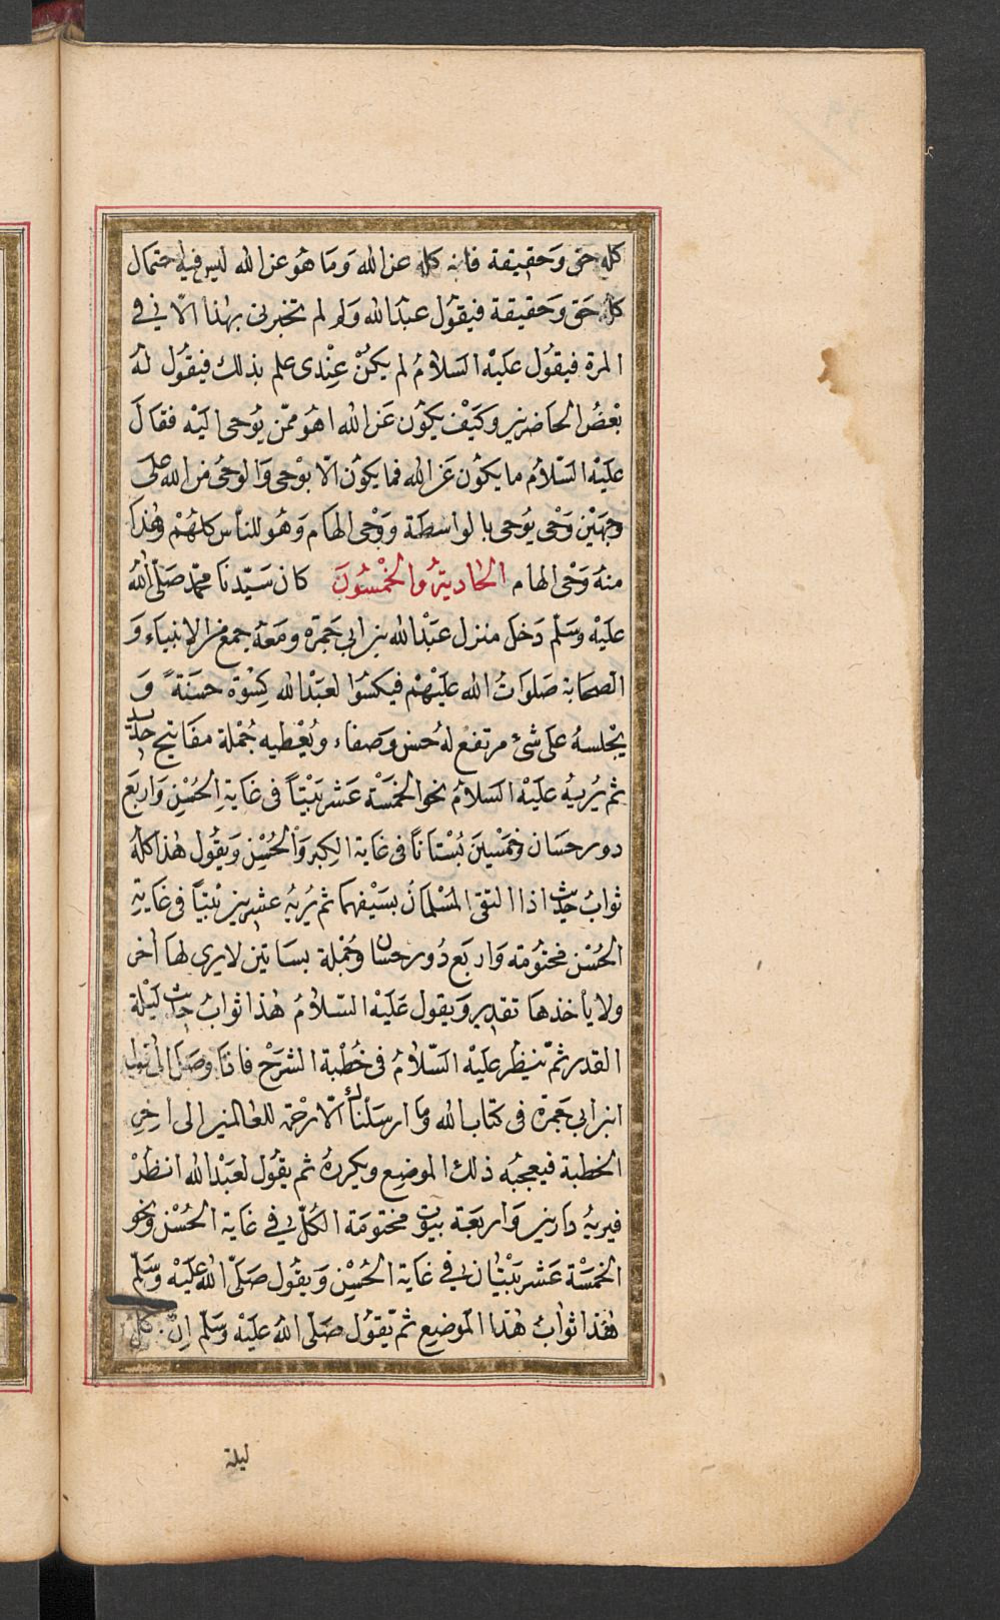 كله حق وَحقيقة فانه كله عن الله وَما هوَ عن الله ليس فيه احتمال
كله حَق وَحقيقة فيقول عبد الله وَلم لم تخبرنى بهٰذا الّا نى فى
المرة فيقُول عليْه السَلامُ لم يكُنْ عِنْدى علم بذلك فيقُول لهُ
بعْضُ الحَاضرين وكيَفْ يكوُن عَن الله اهوَ ممّن يُوحى اليَه فقالَ
عليْه السّلامُ ما يكوُن عَن الله فما يكوُن الّا بوْحى وَالوحْى من الله علىَ
وجهَيْن وَحْى يُوحى بالواسطَة ووَحْى الهام وَهُو للناس كلهُمْ وهٰذا
منهُ وَحْى الهام الحاديةُ والخمْسُونَ كان سَيّدنَا محمّد صَلّى اللهُ
عليْه وسَلّم دَخلَ منزل عبْد الله بن ابى جَمرَة ومَعهُ جمعْ من الانبيَاء وَ
الصحَابة صَلوَاتُ الله عليْهمْ فيكسُوا لعبْد الله كِسْوَة حسَنَةً وَ
يجْلسهُ على شئ مرتفع لهُ حسن وَصفاء ويُعْطيه جُمْلة مفَاتيح حديد
ثم يُريهُ عليْه السَلامُ نحو الخمسْة عَشر بَيْتاً فى غَاية الحُسْن وَاربَع
دور حسَان وخمْسينَ بُسْتَاناً فى غاية الكِبر وَالحُسْن وَيقُول هٰذا كلهُ
ثوابُ حديث اذا التقى المسْلمانُ بسَيْفيهما ثم يُريهُ عشرين بيْتاً فى غَايةِ
الحُسْن مختُومَة وَاربَع دُور حسان وجُملة بسَاتين لا يرى لها اٰخر
ولا يأخذهَا تقدير وَيقول عليْه السّلامُ هٰذا ثوابُ حديث ليْلة
القدر ثم ينظر عليْه السّلامُ فى خُطْبة الشرَحْ فاتا وصَل الى قول
ابن ابى جَمرَة فى كتاب الله وَما ارسَلناك الّا رحْمة للعالمين الى اخرِ
الخطبة فيعجبُه ذلك الموضِع ويكررهُ ثم يقُول لعبَدْ الله انظُرْ
فيريهُ دارين وَاربَعَة بيوت مختومَة الكُلّ فى غاية الحُسْن ونحو
الخمسْة عَشر بَيْتان فى غَاية الحُسْن وَيقُول صَلّى الله عليْه وسَلّم
هٰذا ثوابُ هٰذا الموضِع ثم يقوُل صَلّى اللهُ عليْه وَسَلّم اِنّ كلّ
ليلة